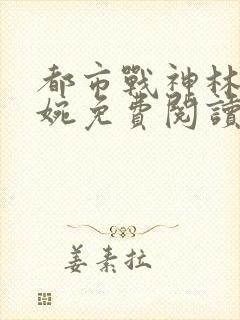 都市戰神林
婉免費閱讀
姜素拉